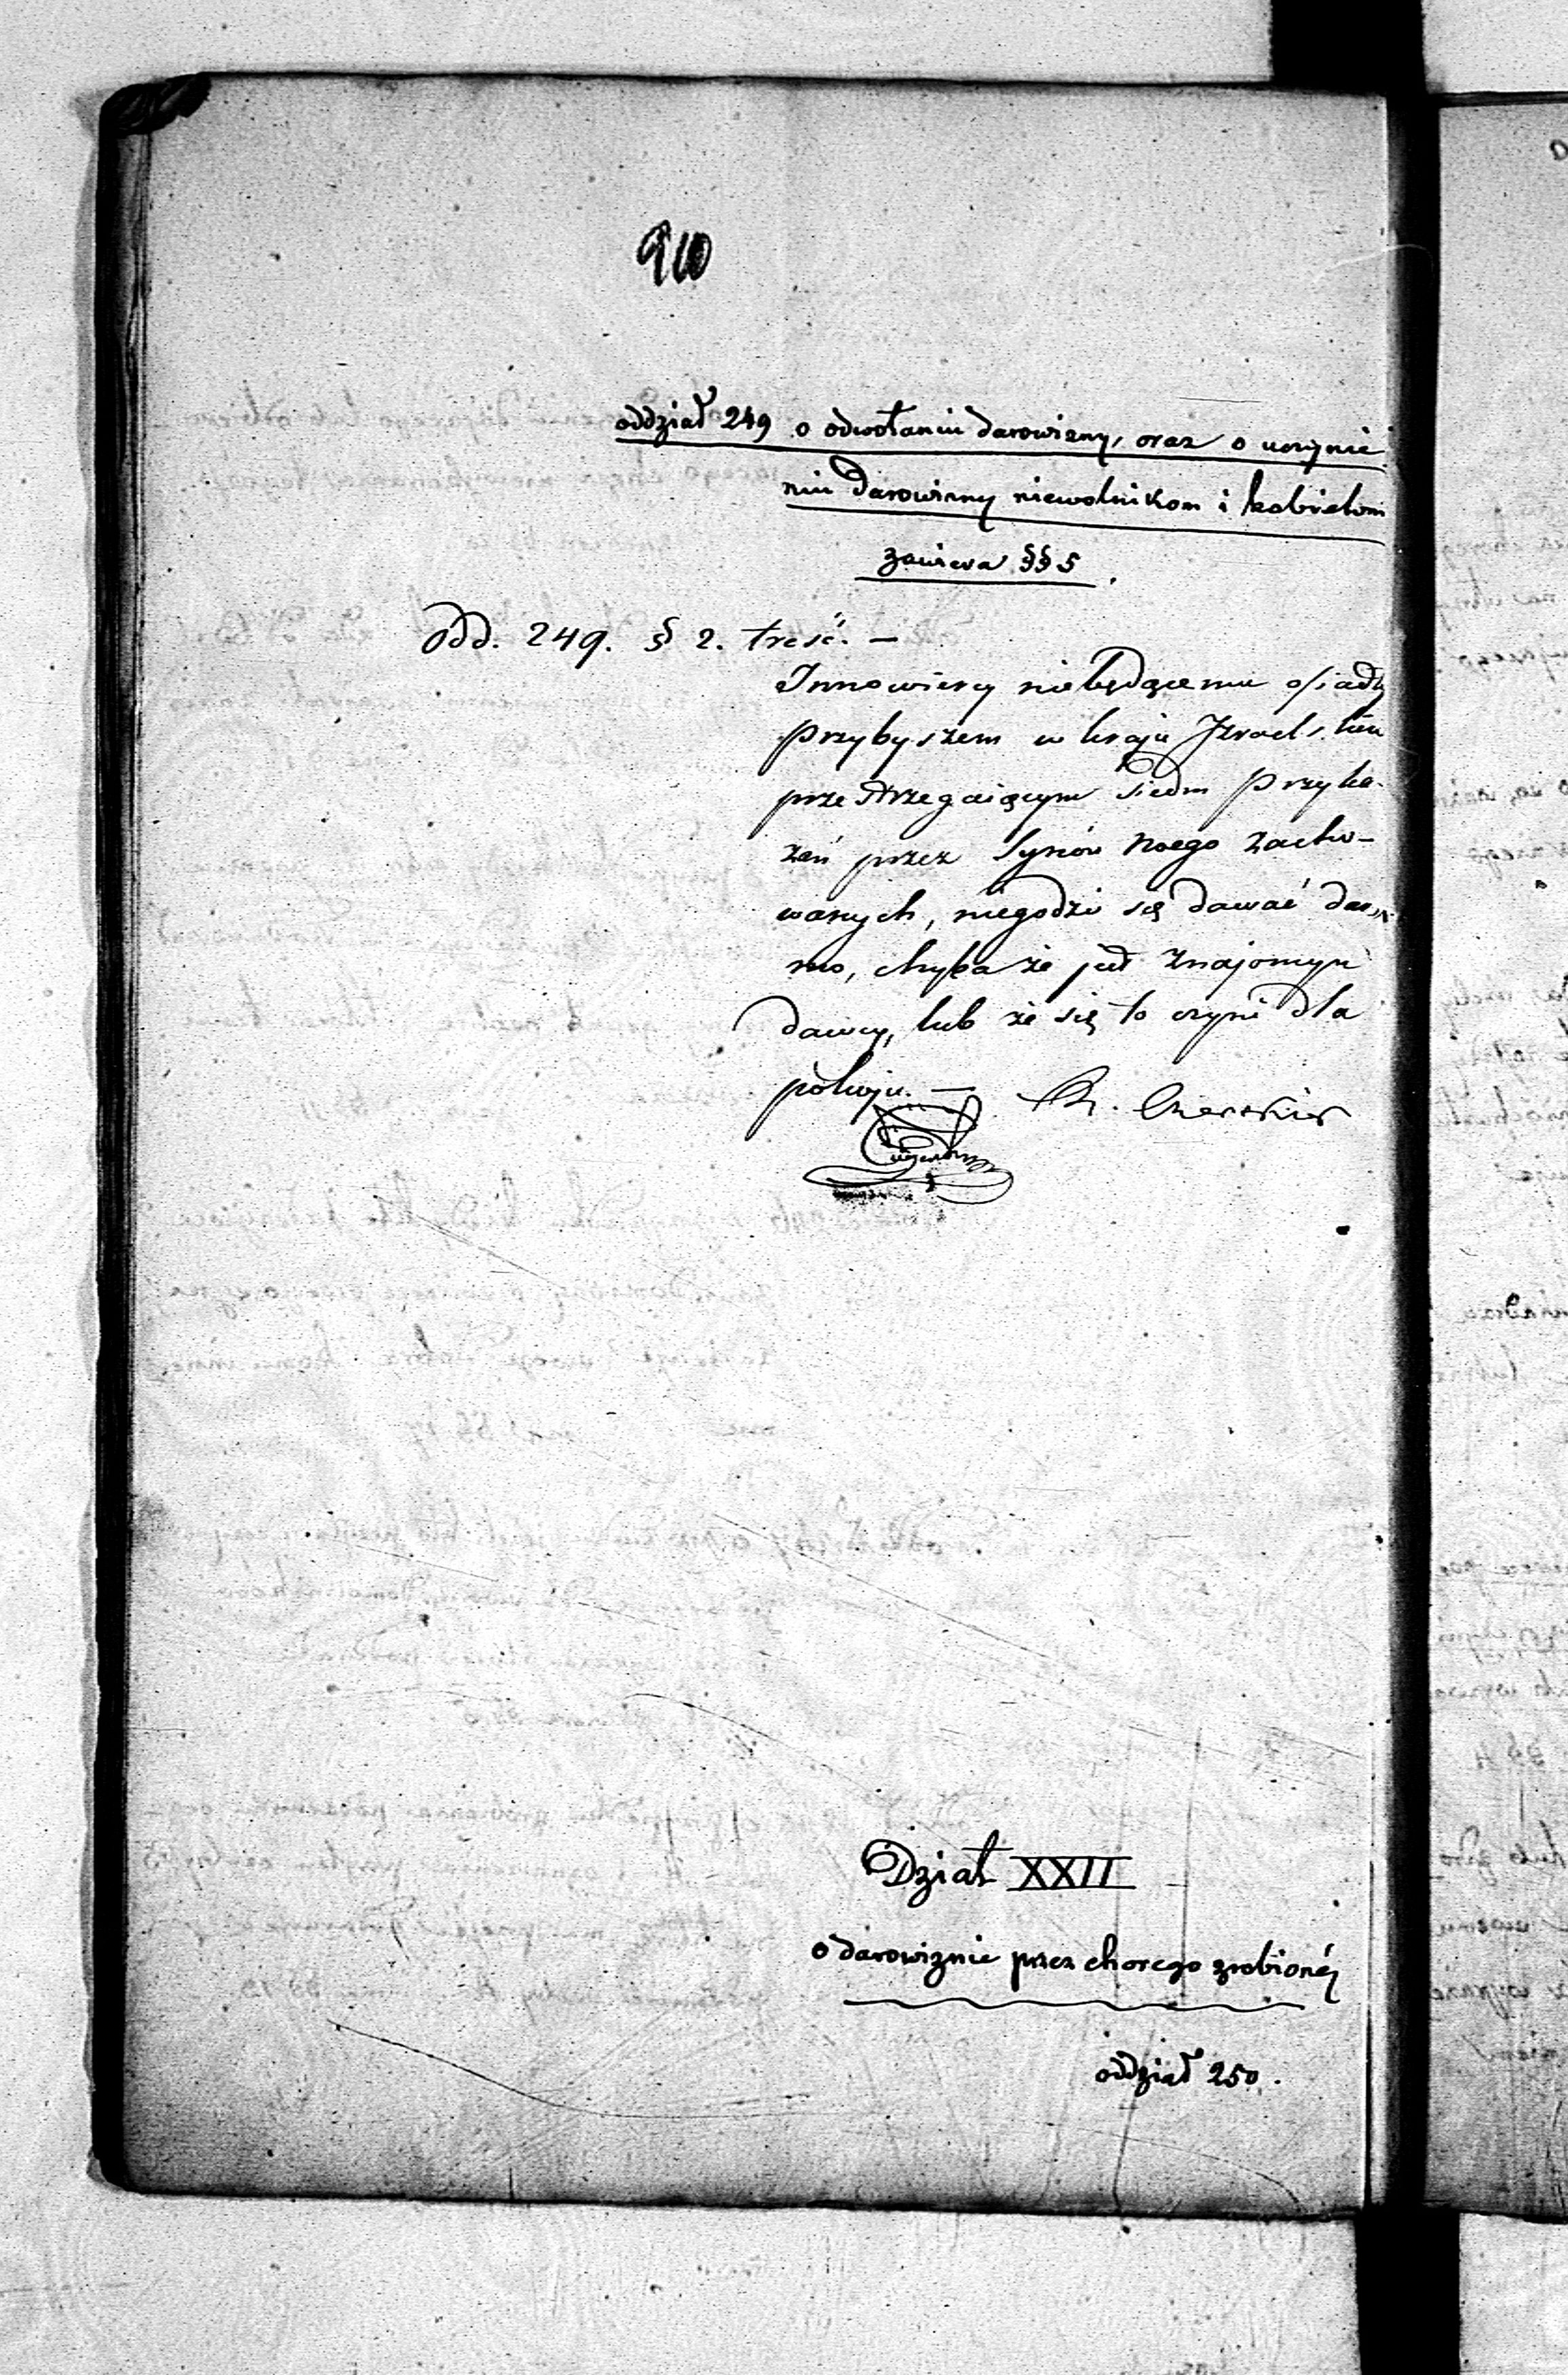 910
oddział 249 o odwołaniu darowizny, oraz o uczynie
niu darowizny niewolnikom i kobietom
zawiera §§ 5.
Odd. 249. § 2. treść. —
Innowiercy niebędącemu osiadły
przybyszem w kraju Izraelskim
przestrzegaiącym siedm przyka-
zań przez Synów Noego zacho-
wanych, niegodzi się dawać dar-
mo, chyba że jest znajomym
dawcy, lub że się to czyni dla
pokoju. —
Dział XXII
o darowiznie przez chorego zrobionéj
oddział 250.